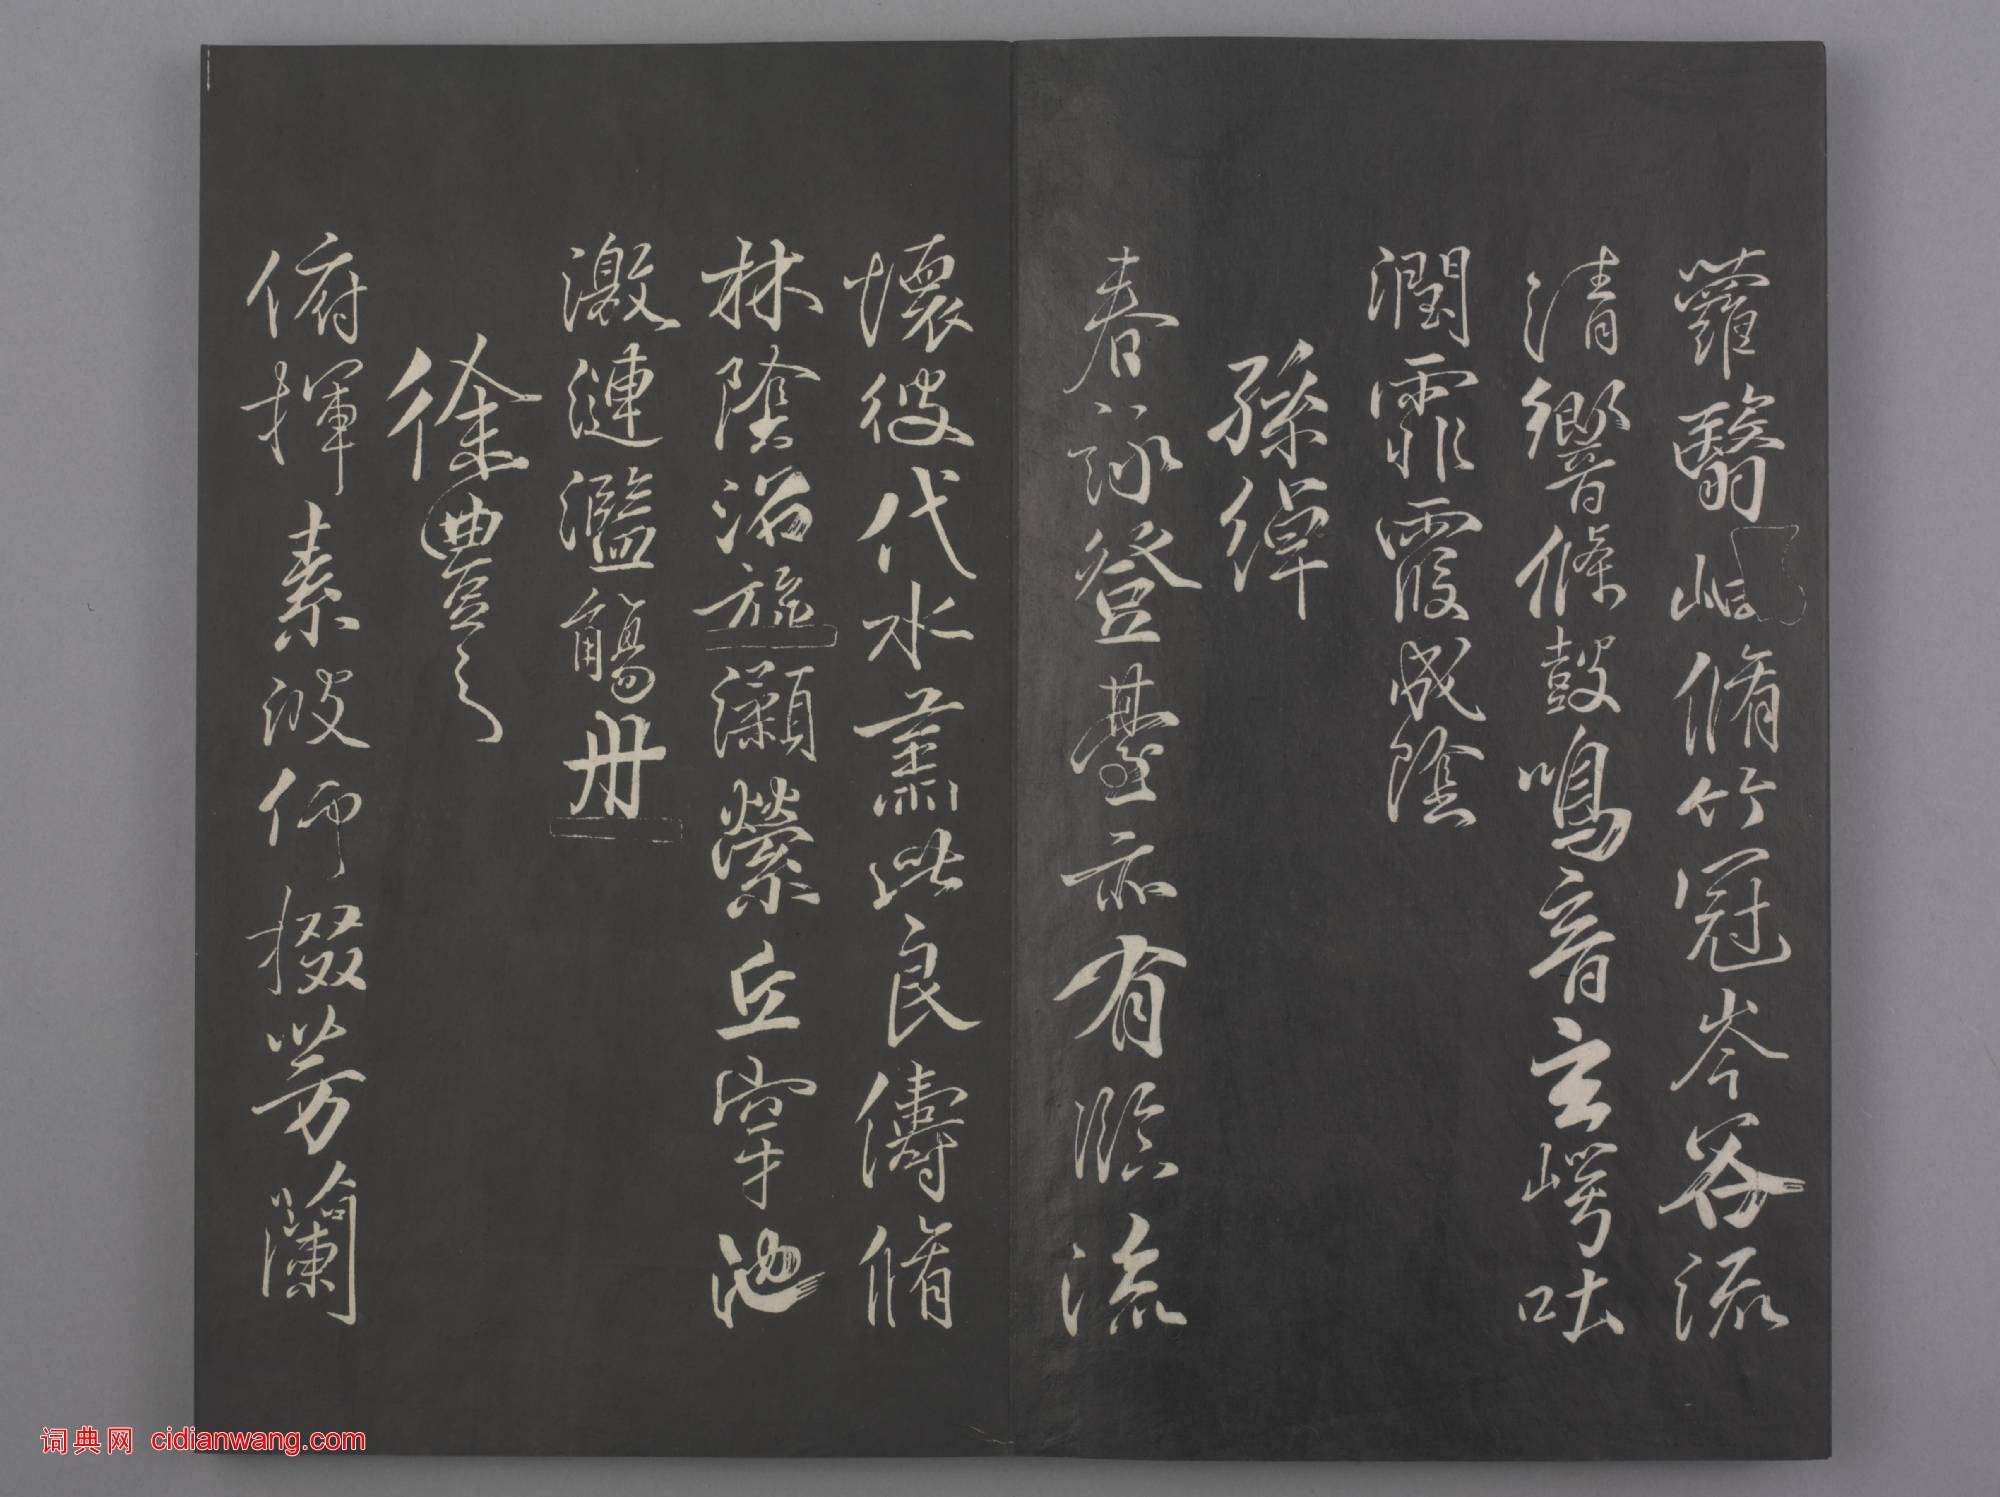 蘿翳岫脩竹冠岑谷流
清響條鼓鳴音玄崿吐
潤霏霞成陰
孫綽
春詠登臺亦有臨流
懷彼代水肅此良儔脩
林陰沼旋瀨縈丘穿池
激漣濫觴舟
徐豐之
俯揮素波仰掇芳蘭
词典网 cidianwang.com